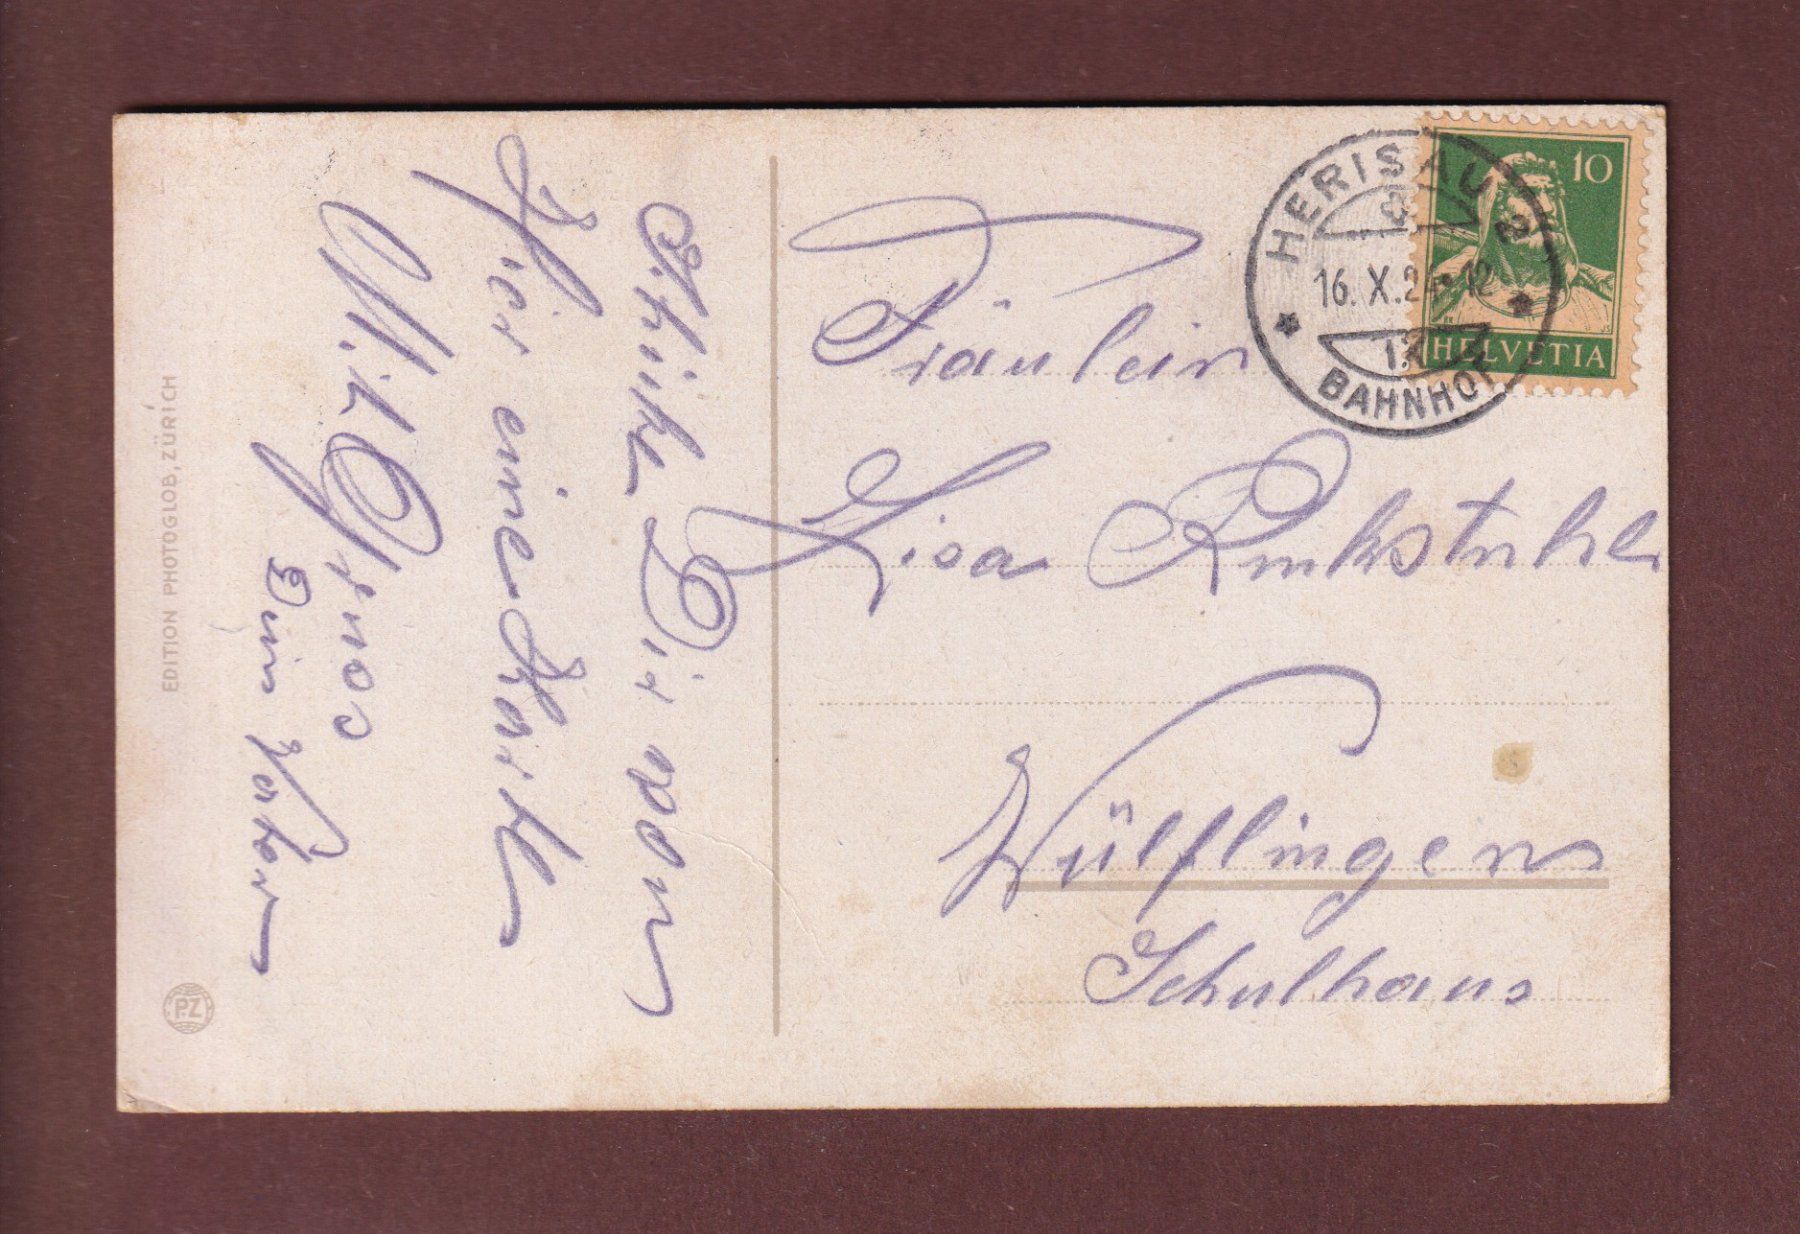 Schicke Dir von
hier eine Karte
Mit Gruss
Dein Vater
EDITION PHOTOGLOB, ZÜRICH
P.Z
HERISAU 2
16. X. 24 - 12
BAHNHOF
10
HELVETIA
Fräulein
Lisa
Wülflingen
Schulhaus